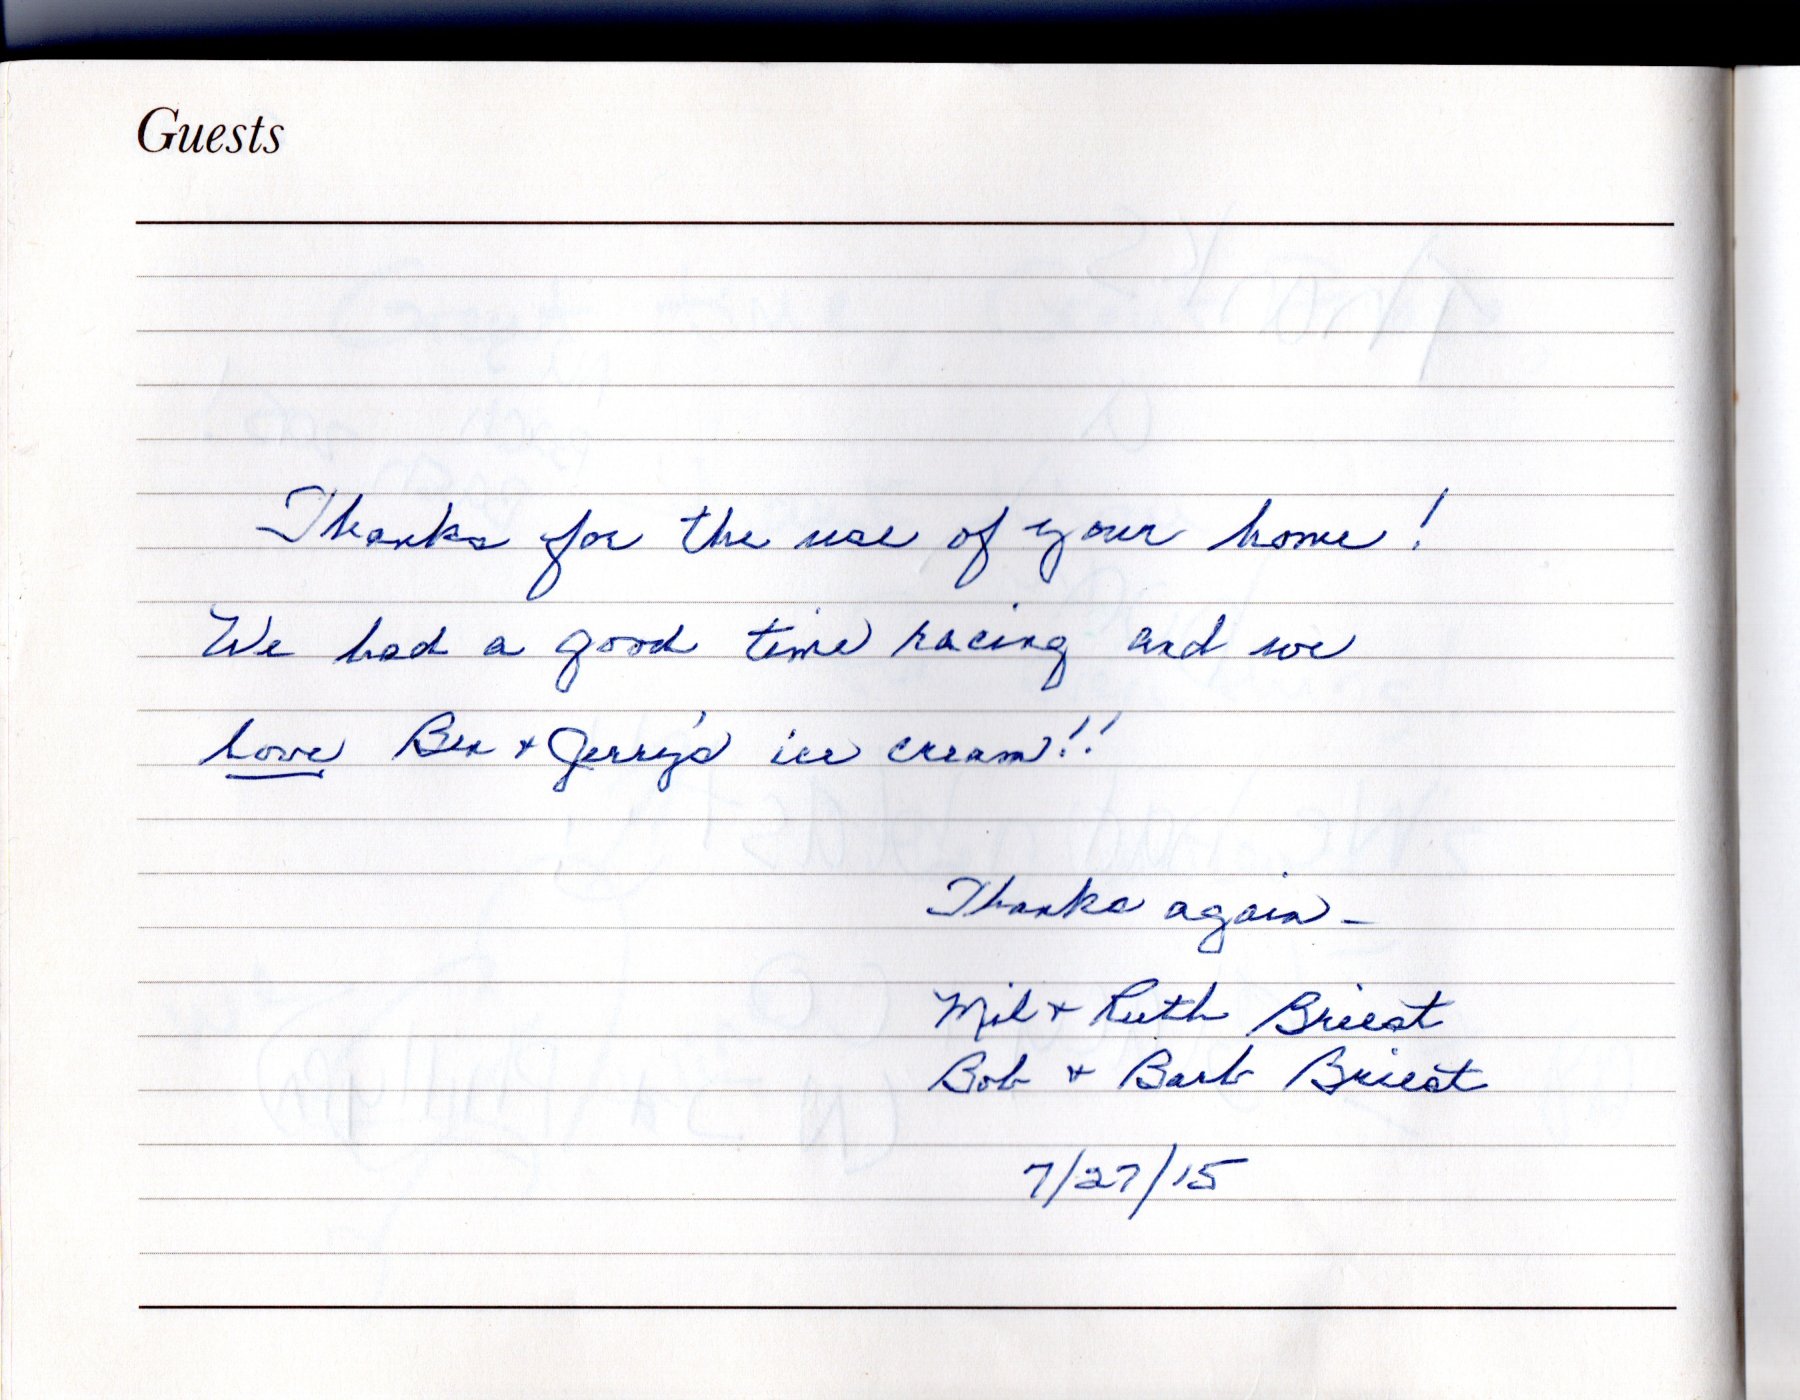 Guests
Thanks for the use of your home!
We had a good time racing and we
love Ben + Jerry's ice cream!!
Thanks again -
Mil + Ruth Briest
Bob + Barb Briest
7/27/15